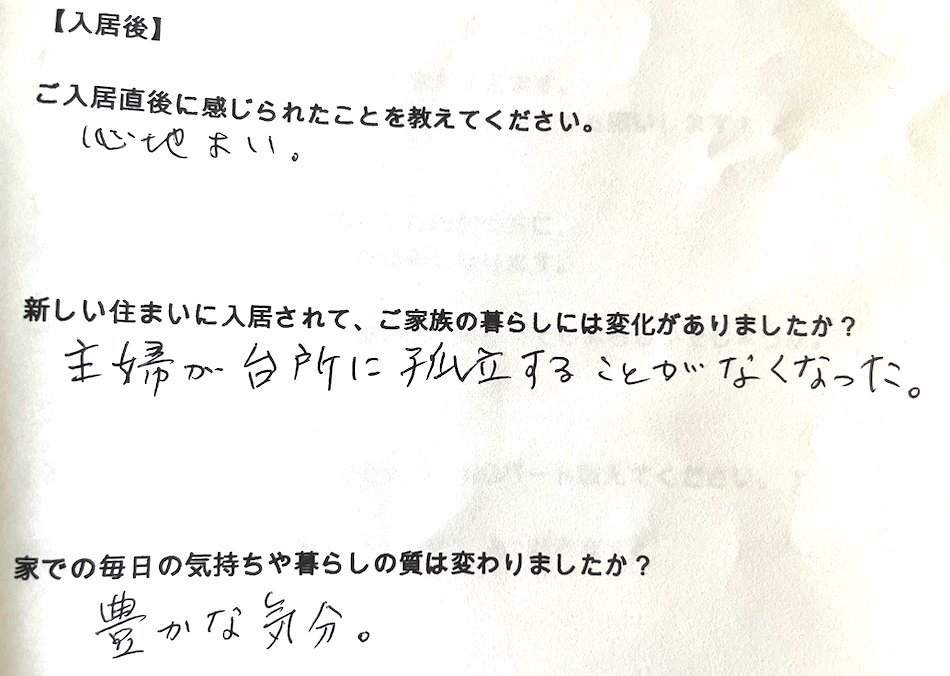 【入居後】
ご入居直後に感じられたことを教えてください。
心地よい。
新しい住まいに入居されて、ご家族の暮らしには変化がありましたか？
主婦が台所に孤立することがなくなった。
家での毎日の気持ちや暮らしの質は変わりましたか？
豊かな気分。